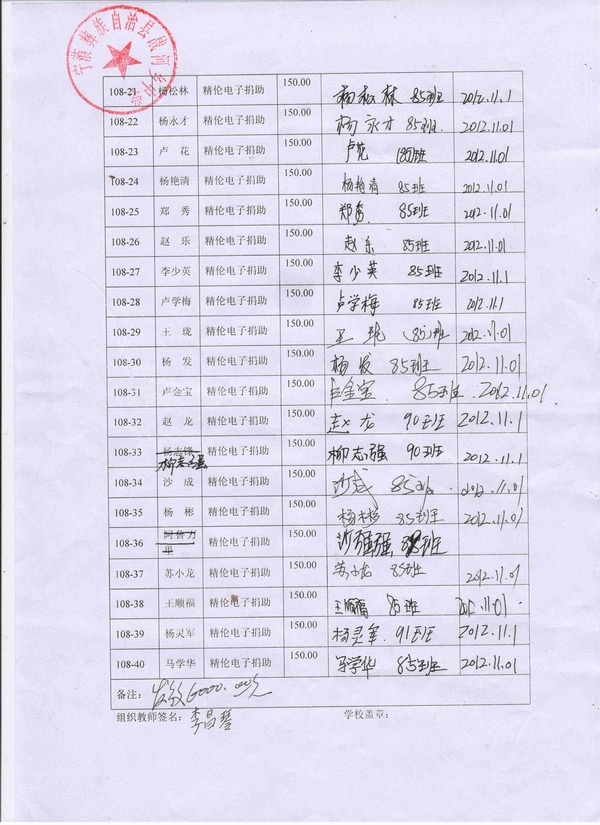 宁蒗彝族自治县战河乡中学
108-21 杨松林 精伦电子捐助 150.00 杨松林 85班 2012.11.1
108-22 杨永才 精伦电子捐助 150.00 杨永才 85班 2012.11.01
108-23 卢花 精伦电子捐助 150.00 卢花 85班 2012.11.01
108-24 杨艳清 精伦电子捐助 150.00 杨艳清 85班 2012.11.01
108-25 郑秀 精伦电子捐助 150.00 郑秀 85班 2012.11.01
108-26 赵乐 精伦电子捐助 150.00 赵乐 85班 2012.11.01
108-27 李少英 精伦电子捐助 150.00 李少英 85班 2012.11.1
108-28 卢学梅 精伦电子捐助 150.00 卢学梅 85班 2012.11.1
108-29 王珑 精伦电子捐助 150.00 王珑 (85)班 2012.11.01
108-30 杨发 精伦电子捐助 150.00 杨发 85班 2012.11.01
108-31 卢金宝 精伦电子捐助 150.00 卢金宝 85班 2012.11.01
108-32 赵龙 精伦电子捐助 150.00 赵龙 90班 2012.11.1
108-33 杨志锋 精伦电子捐助 150.00 柳志强 90班 2012.11.1
柳志强
108-34 沙成 精伦电子捐助 150.00 沙成 85班 2012.11.01
108-35 杨彬 精伦电子捐助 150.00 杨彬 85班 2012.11.01
108-36 精伦电子捐助 150.00 沙强强 85班
108-37 苏小龙 精伦电子捐助 150.00 苏小龙 85班 2012.11.01
108-38 王顺福 精伦电子捐助 150.00 王顺福 85班 2012.11.01
108-39 杨灵军 精伦电子捐助 150.00 杨灵军 91班 2012.11.1
108-40 马学华 精伦电子捐助 150.00 马学华 85班 2012.11.01
备注: 发放6000.00元
组织教师签名: 李昌 学校盖章: